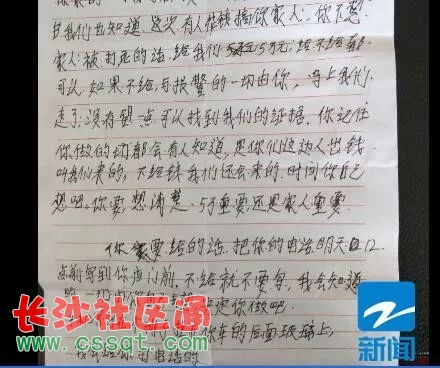 且我们也知道,这次有人花钱搞你家人:你不想
家人:被打死的话,给我们5万元,给不给都
可以,如果不给,与报警的一切由你,马上我们
走了,没有留一点可以找到我们的证据,你记住
你做的动都会有人知道,是你们这边人出钱
叫我们来的,不给钱我们还会来的,时间你自己
想吧,你要想清楚,5万重要还是家人重要.
你要给的话,把你的电话明天12
点前写到你店门前,不给就不要写,我会知道
是你做吧
你车的后面玻璃上,
长沙社区通
www.cssqt.com
新闻